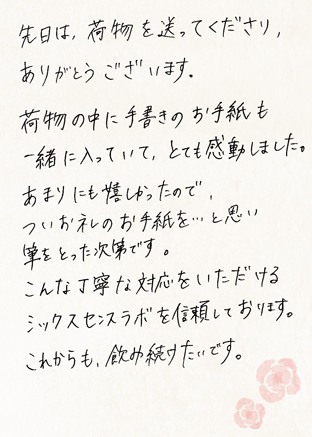 先日は、荷物を送ってくださり、
ありがとうございます。
荷物の中に手書きのお手紙も
一緒に入っていて、とても感動しました。
あまりにも嬉しかったので、
ついお礼のお手紙を…と思い
筆をとった次第です。
こんな丁寧な対応をいただける
シックスセンスラボを信頼しております。
これからも、飲み続けたいです。